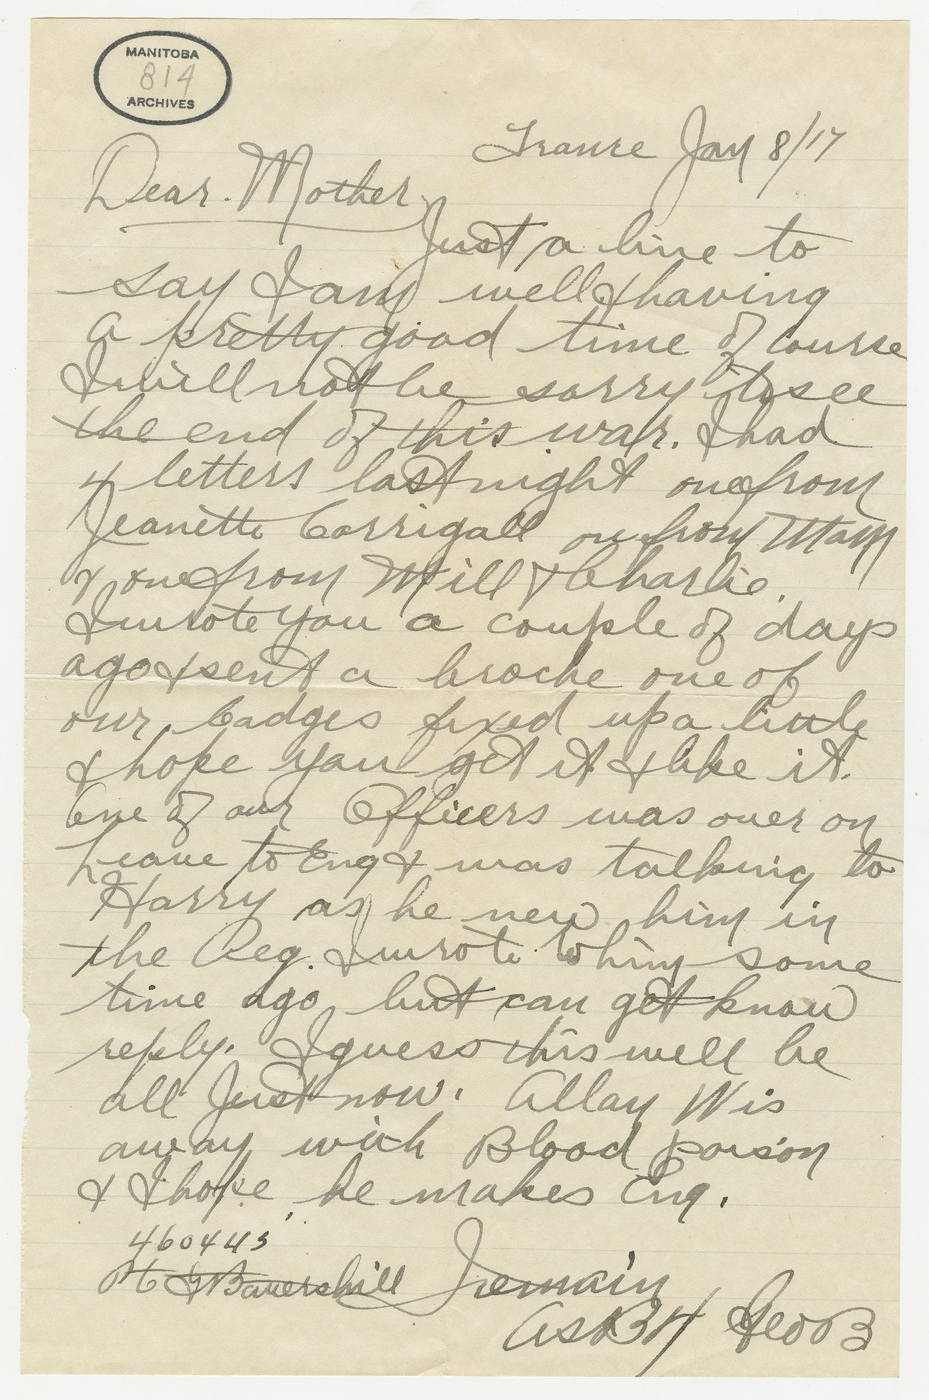 MANITOBA
814
ARCHIVES
France Jan 8/17
Dear Mother,
Just a line to
say I am well & having
a pretty good time of course
I will not be sorry to see
the end of this war. I had
4 letters last night one from
Jeanette Corrigall on from Mam
& one from Will & Charlie.
I wrote you a couple of days
ago & sent a broche one of
our badges fixed up a little
& hope you get it & like it.
One of our Officers was over on
Leave to Eng & was talking to
Harry as he new him in
the Reg. I wrote to him some
time ago but can get know
reply. I guess this well be
all Just now. Allan W is
away with Blood poison
& I hope he makes Eng.
460445
Pt G Battershill I remain
as B4 Geo B